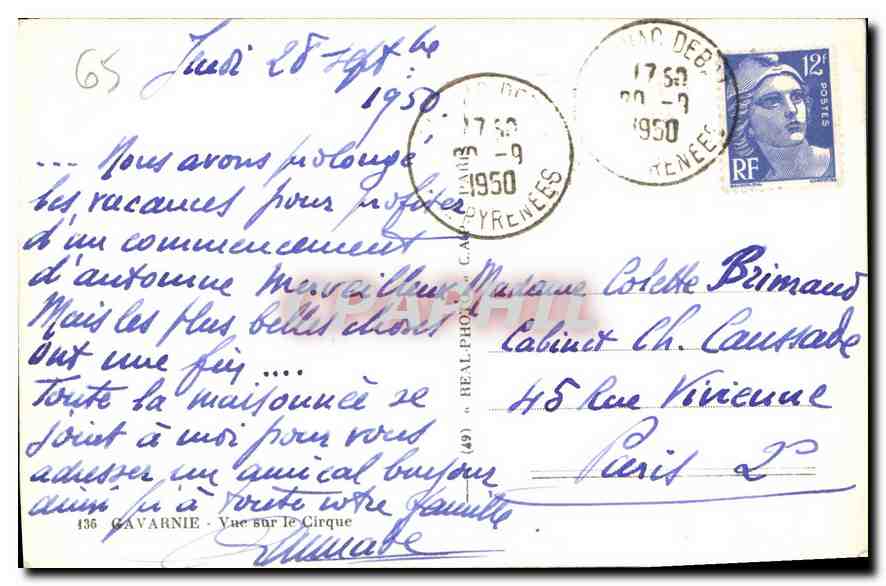 65
Jeudi 28 septbre
1950
... Nous avons prolongé
les vacances pour profiter
d'un commencement
d'automne merveilleux
Mais les plus belles choses
ont une fin ....
Toute la maisonnée se
joint à moi pour vous
adresser un amical bonjour
ainsi qu'à toute votre famille
136 GAVARNIE - Vue sur le Cirque
Madame Colette Brimaud
Cabinet Ch. Caussade
45 Rue Vivienne
Paris 2e
(49) « REAL-PHOTO » C.A.P. PARIS
17 50
-9
1950
PYRENEES
17 50
-9
1950
PYRENEES
12F
POSTES
RF
CPAPHIL